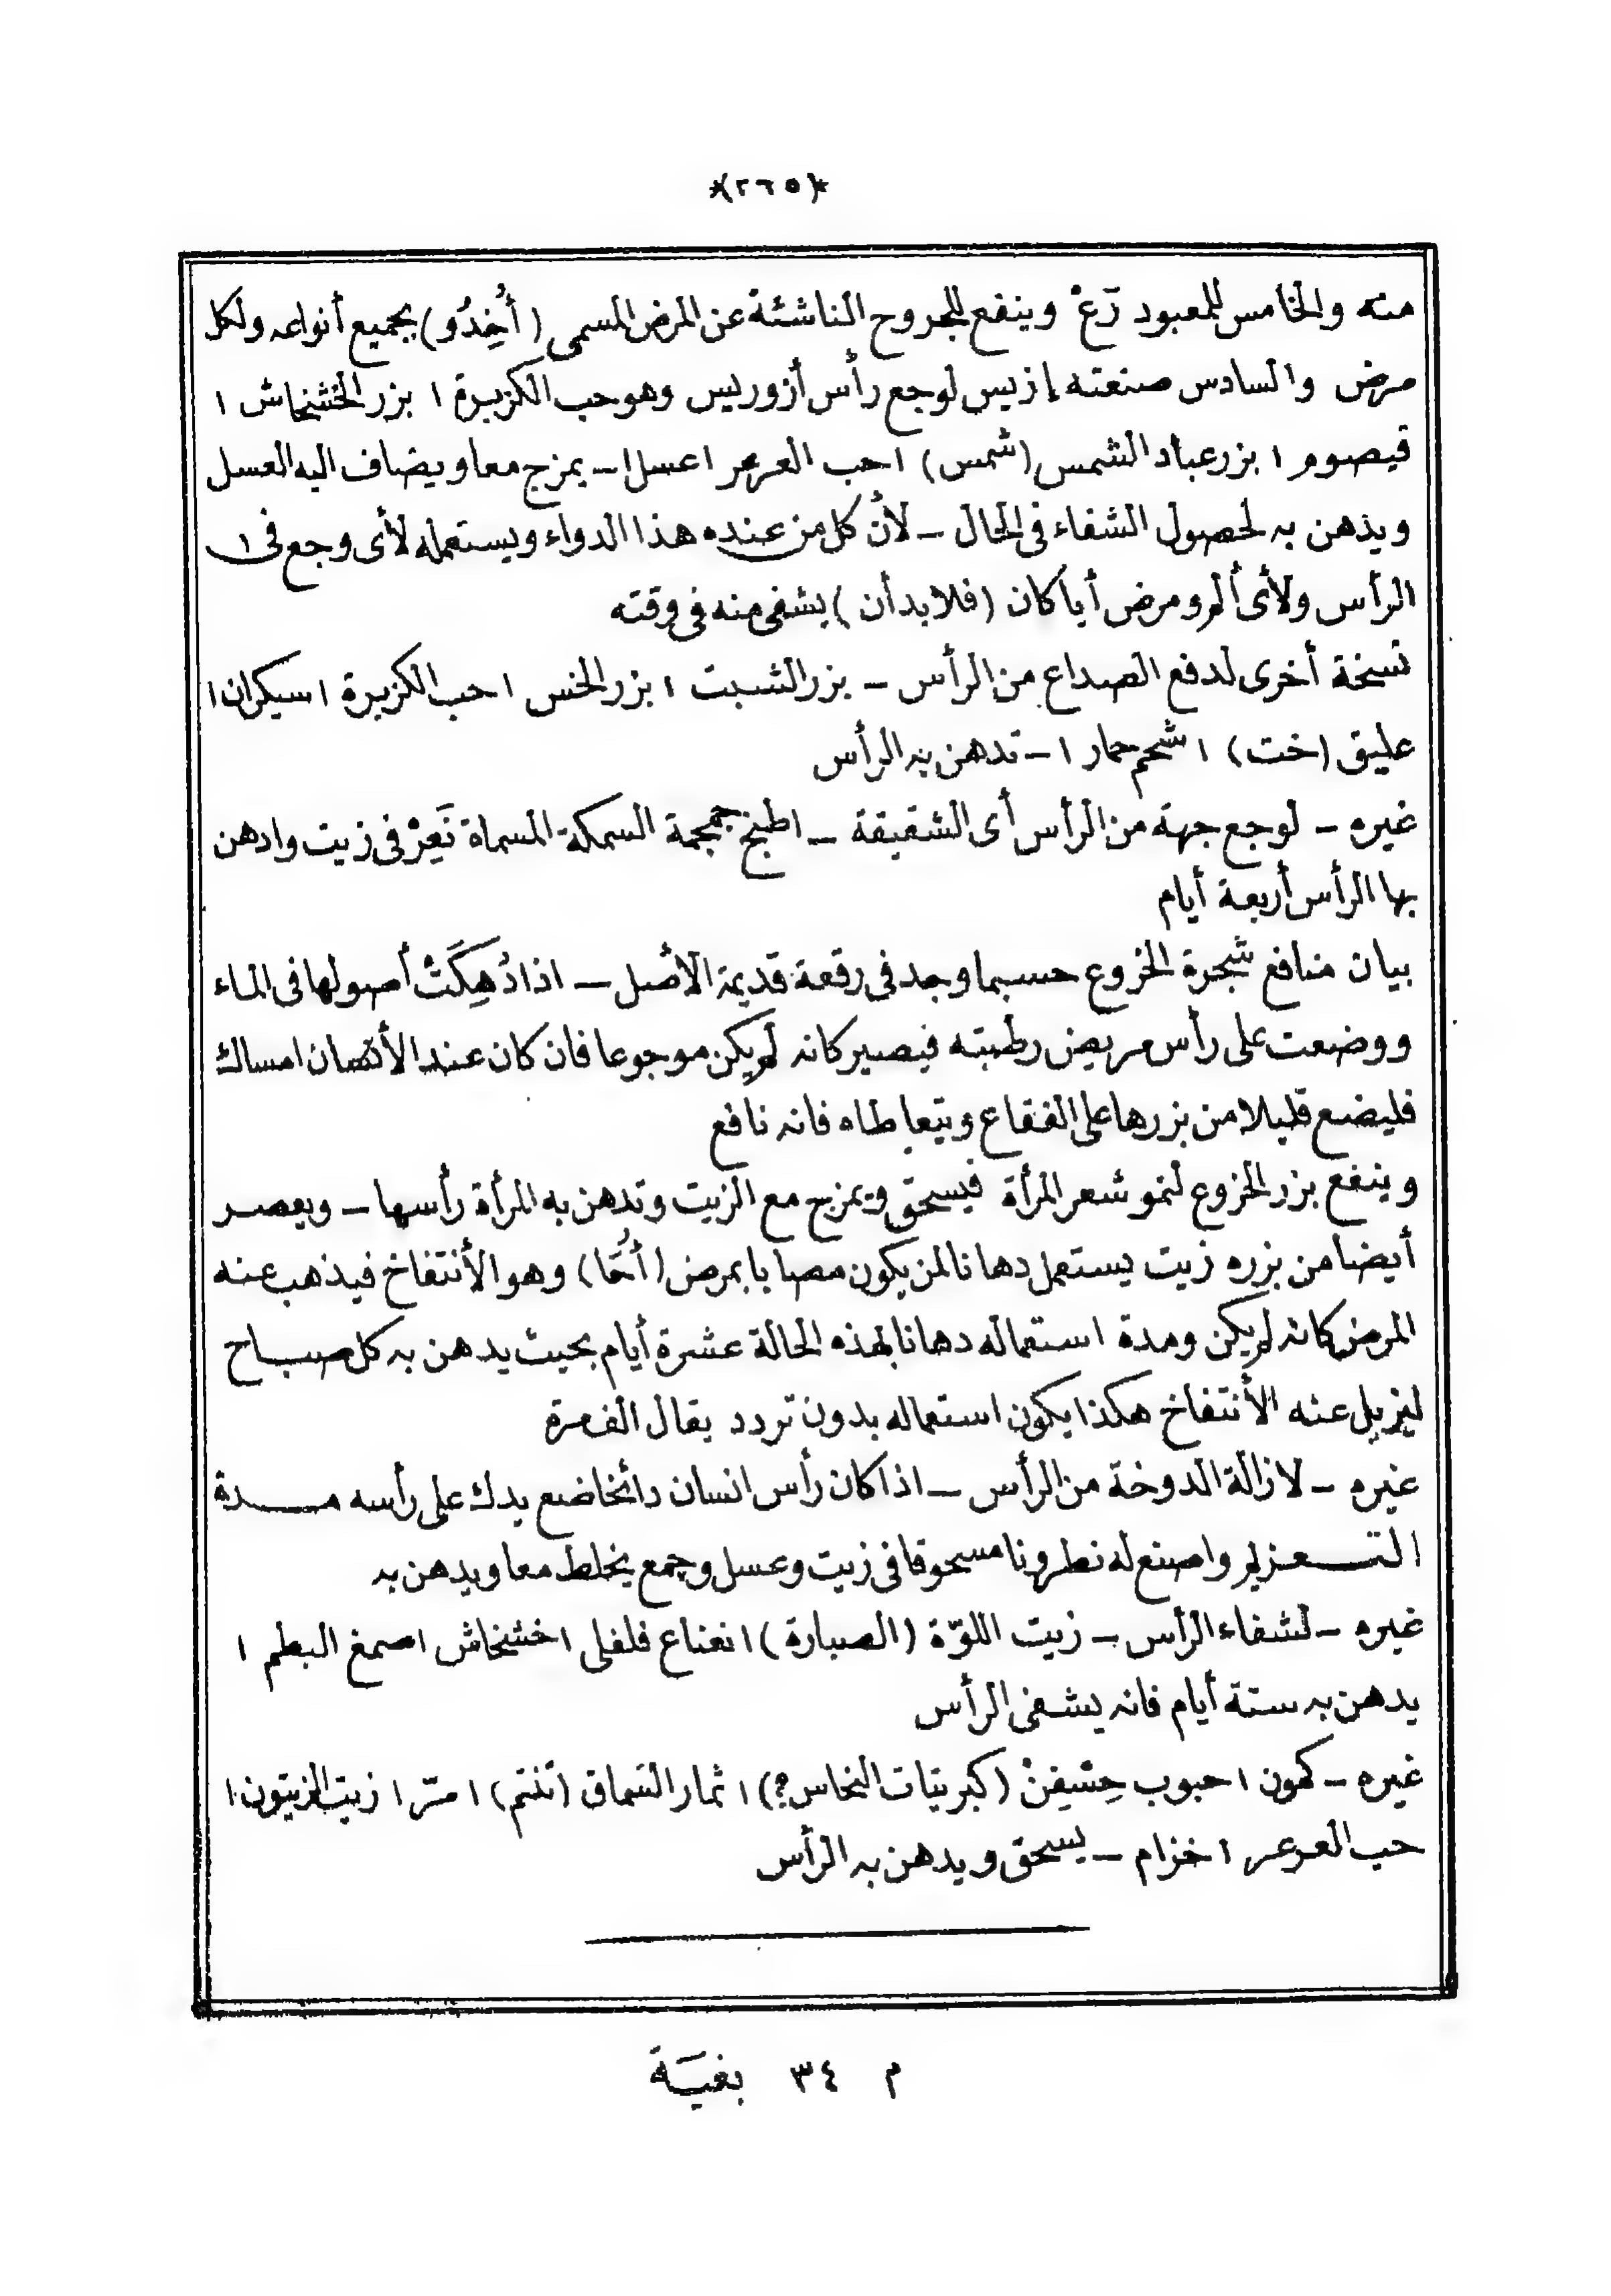 *(٢٦٥)*
منه والخامس للمعبود رَعْ وينفع للجروح الناشئة عن المرض المسمى (أُخِدُو) بجميع أنواعه ولكل
مرض والسادس صنعته إزيس لوجع رأس أزوريس وهو حب الكزبرة ١ بزر الخشخاش ١
قيصوم ١ بزر عباد الشمس (شمس) ١ حب العرعر ١ عسل ١ - يمزج معا ويضاف اليه العسل
ويدهن به لحصول الشفاء فى الحال - لأن كل من عنده هذا الدواء ويستعمله لأى وجع فى
الرأس ولأى ألم ومرض أيا كان (فلا بد أن) يشفى منه فى وقته
نسخة أخرى لدفع الصداع من الرأس - بزر الشبت ١ بزر الخس ١ حب الكزبرة ١ سيكران ١
عليق (خت) ١ شحم حمار ١ - تدهن به الرأس
غيره - لوجع جهة من الرأس أى الشقيقة - اطبخ جمجمة السمكة المسماة نَعِرْ فى زيت وادهن
بها الرأس أربعة أيام
بيان منافع شجرة الخروع حسبما وجد فى رقعة قديمة الأصل - اذا دُهِكَتْ أصولها فى الماء
ووضعت على رأس مريض رطبته فيصير كانه لم يكن موجوعا فان كان عند الأنسان امساك
فليضع قليلا من بزرها على الفقاع ويتعاطاه فانه نافع
وينفع بزر الخروع لنمو شعر المرأة فيسحق ويمزج مع الزيت وتدهن به المرأة رأسها - ويعصر
أيضا من بزره زيت يستعمل دهانا لمن يكون مصابا بمرض (أُخَا) وهو الأنتفاخ فيذهب عنه
المرض كانه لم يكن ومدة استعماله دهانا لهذه الحالة عشرة أيام بحيث يدهن به كل صباح
ليزيل عنه الأنتفاخ هكذا يكون استعماله بدون تردد يقال ألف مرة
غيره - لازالة الدوخة من الرأس - اذا كان رأس انسان دائخا ضع يدك على رأسه مدة
التعزيم واصنع له نطرونا مسحوقا فى زيت وعسل وجمع يخلط معا ويدهن به
غيره - لشفاء الرأس - زيت اللوّة (الصبارة) ١ نعناع فلفلى ١ خشخاش ١ صمغ البطم ١
يدهن به ستة أيام فانه يشفى الرأس
غيره - كمون ١ حبوب حِشْفِنْ (كبريتات النحاس؟) ١ ثمار السماق (تنتم) ١ مرّ ١ زيت الزيتون ١
حب العرعر ١ خزام - يسحق ويدهن به الرأس
م ٣٤ بغية